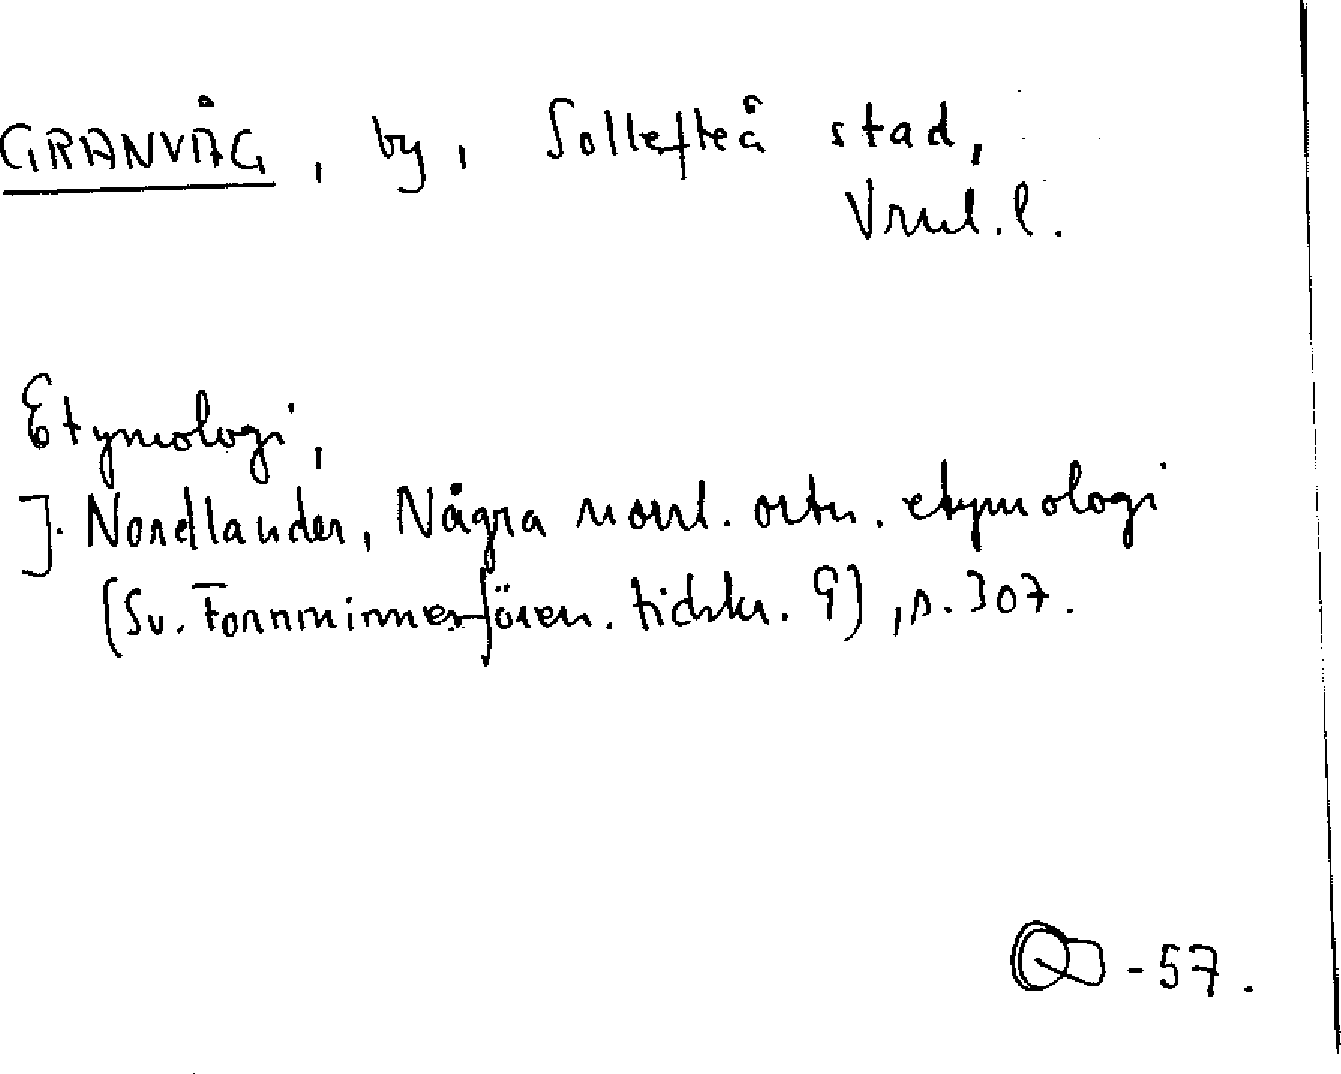 GRANVÅG, by, Sollefteå stad,
Vrnl. l.
Etymologi,
J. Nordlander, Några norrl. ortn. etymologi
(Sv. Fornminnesfören. tidskr. 9), s. 307.
-57.